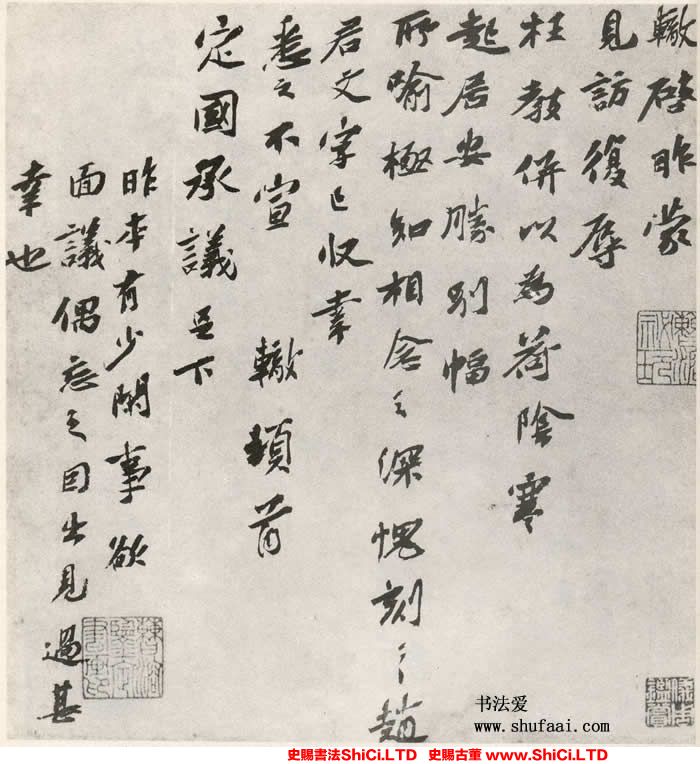 轍啓昨蒙
見訪復辱
枉教併以為荷陰寒
起居安勝別幅
所喻極知相念之深愧刻之趙
君文字已收幸
悉之不宣 轍頓首
定國承議足下
昨本有少閑事欲
面議偶忘之因出見過甚
幸也
书法爱
www.shufaai.com
史賜書法ShiCi.LTD 史賜古董 www.ShiCi.LTD